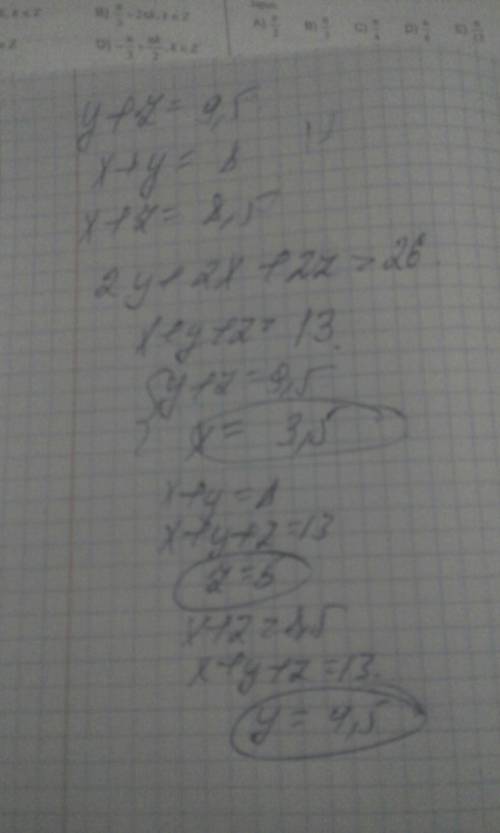 y+z= 9,5
x+y= 8
x+z= 8,5
2y+2x+2z=26
x+y+z=13.
y+z=9,5
x= 3,5
x+y=8
x+y+z=13
z=5
x+z=8,5
x+y+z=13.
y= 4,5